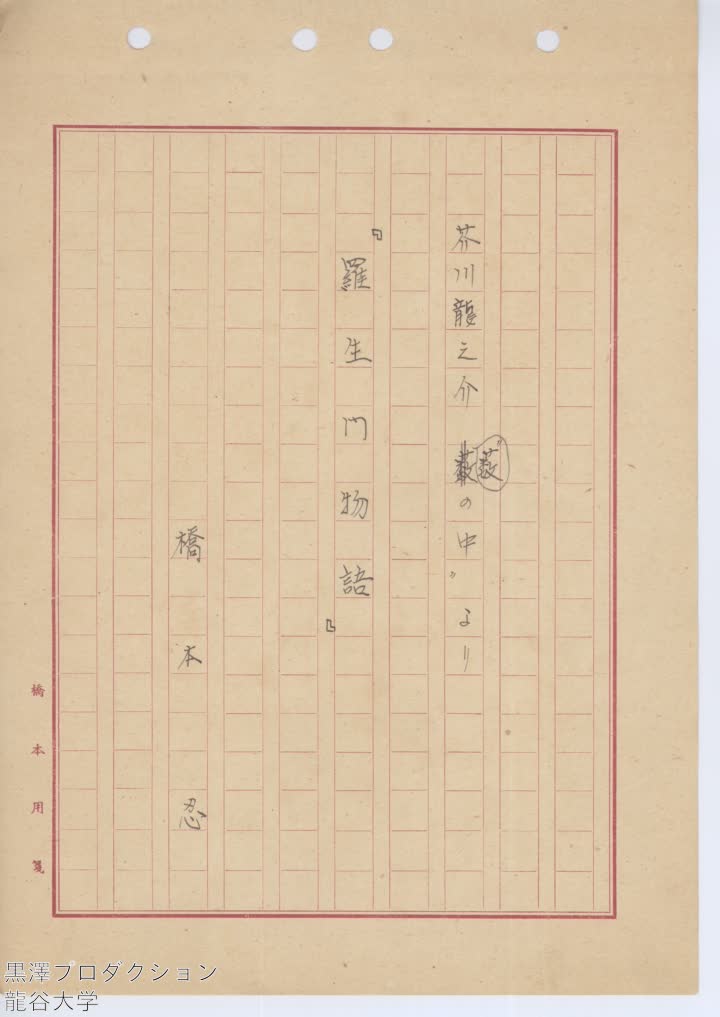 芥川龍之介 “薮の中” より
『羅生門物語』
橋本忍
橋本用箋
黒澤プロダクション
龍谷大学